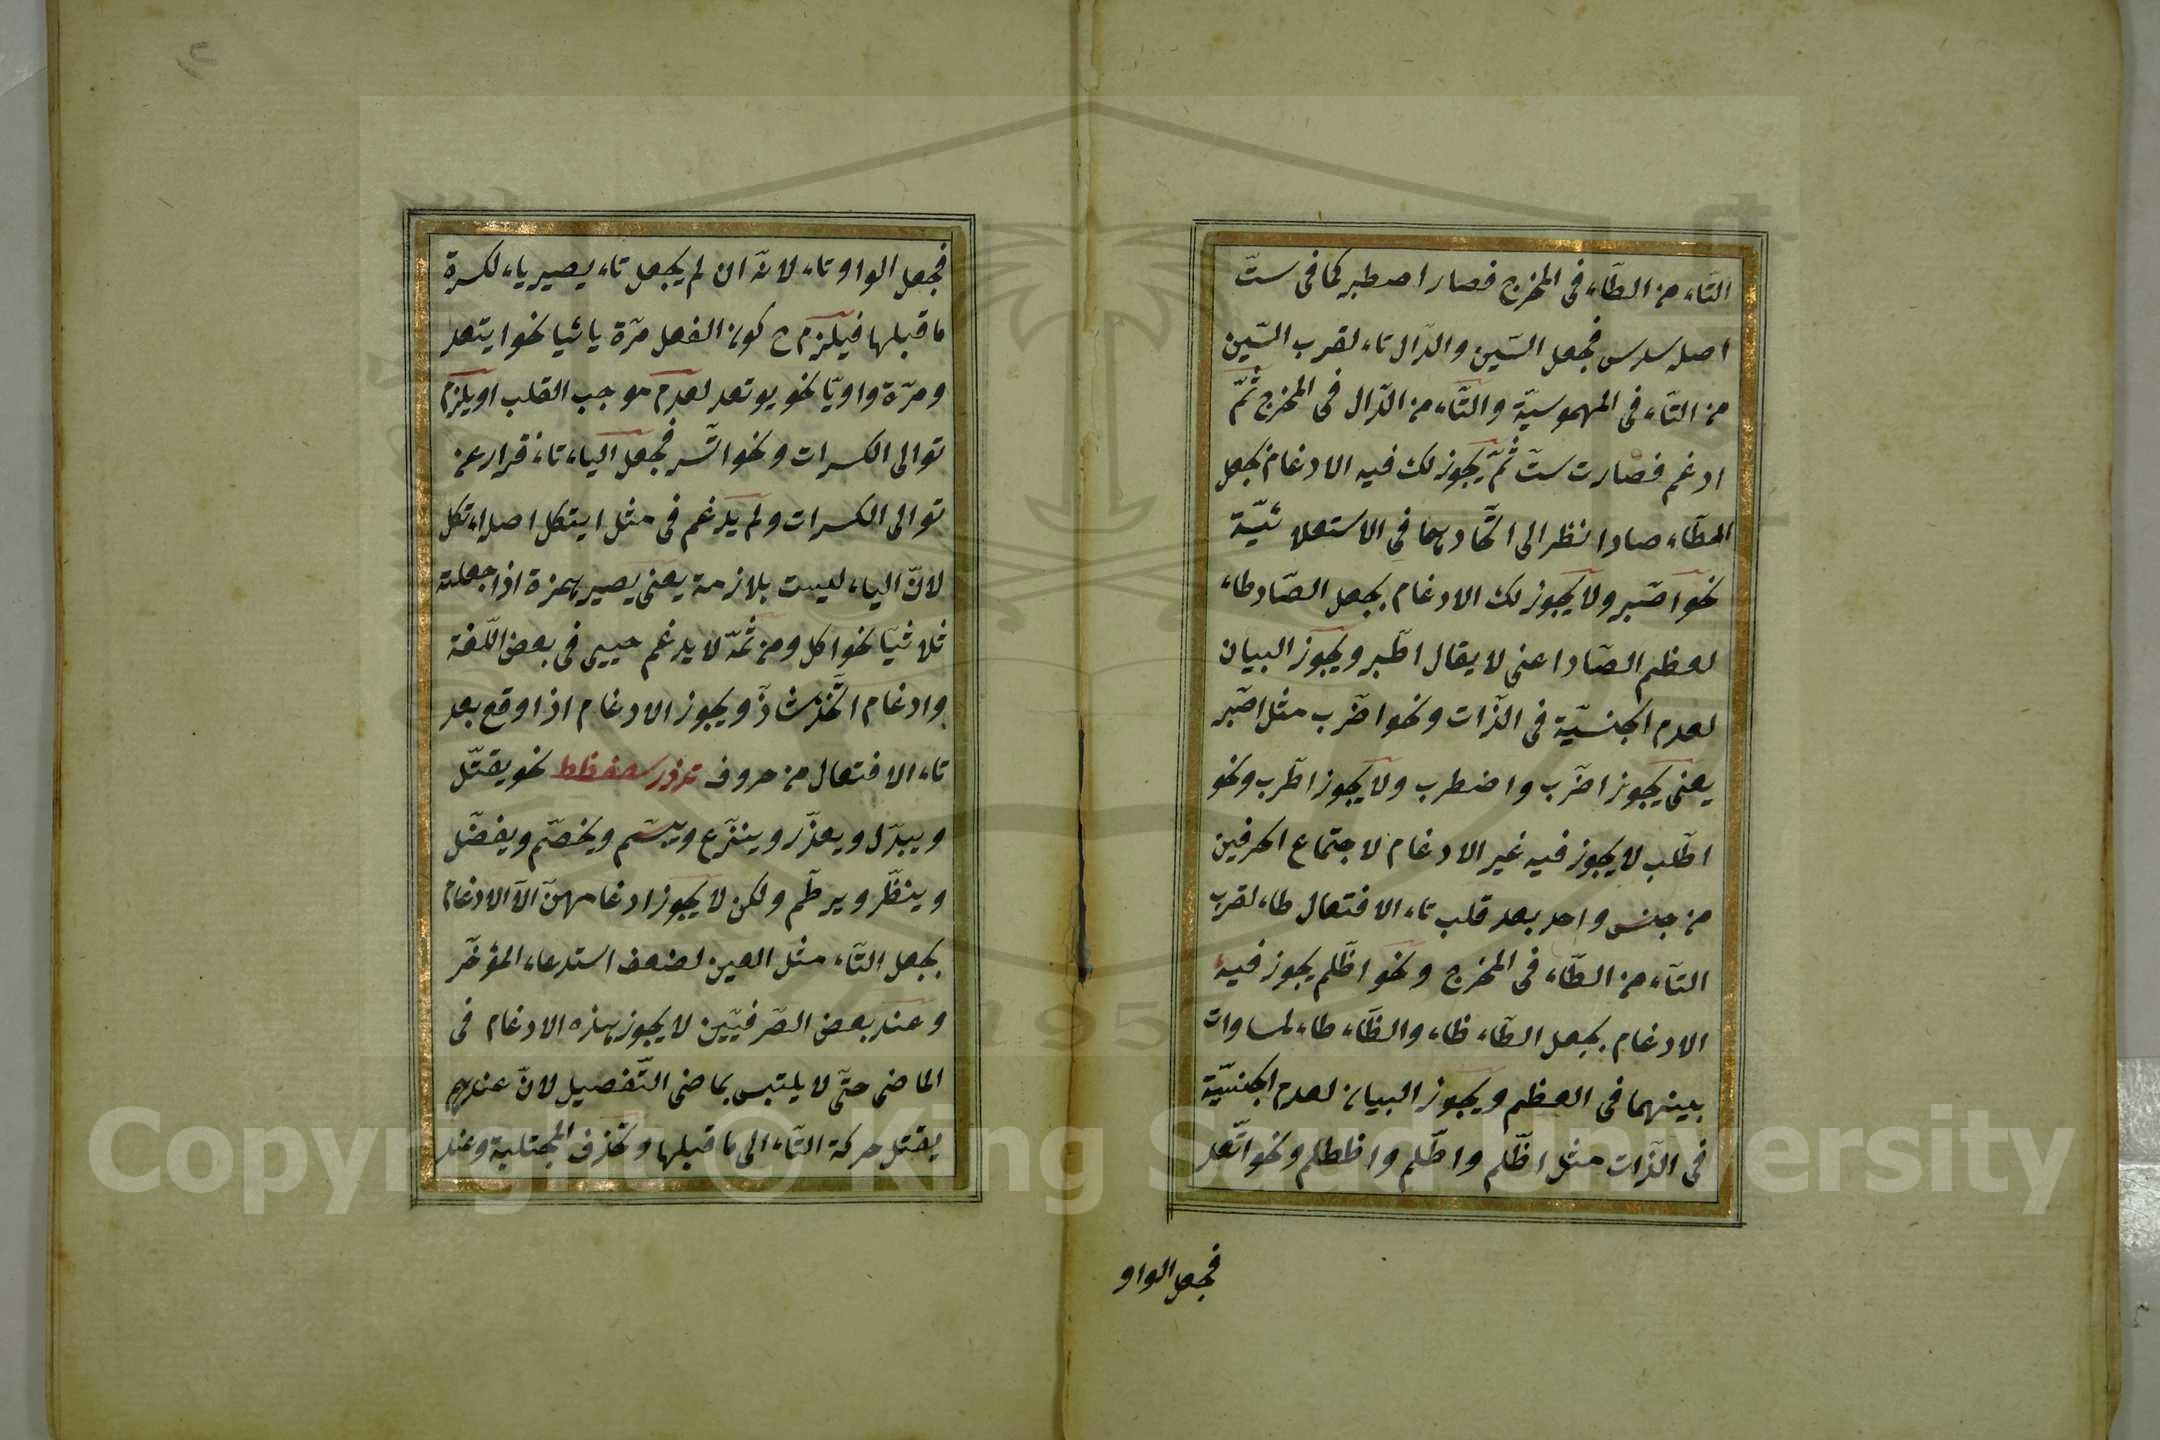 التّاء من الطّاء فى المخرج فصار اصطبر كما فى ستّ
اصله سدس فجعل السّين والدّال تاء لقرب السّين
من التّاء فى المهموسيّة والتّاء من الدّال فى المخرج ثمّ
ادغم فصارت ستّ ثمّ يجوز لك فيه الادغام بجعل
الطّاء صادا نظر الى اتّحادهما فى الاستعلائيّة
نحو اصّبر ولا يجوز لك الادغام بجعل الصّاد طاء
لعظم الصّاد اعنى لا يقال اطّبر ويجوز البيان
لعدم الجنسيّة فى الذّات ونحو اضّرب مثل اصّبر
يعنى يجوز اضّرب واضطرب ولا يجوز اطّرب ونحو
اطّلب لا يجوز فيه غير الادغام لاجتماع الحرفين
من جنس واحد بعد قلب تاء الافتعال طاء لقرب
التّاء من الطّاء فى المخرج ونحو اظّلم يجوز فيه
الادغام بجعل الطّاء ظاء والظّاء طاء لمساوات
بينهما فى العظم ويجوز البيان لعدم الجنسيّة
فى الذّات مثل اظّلم واطّلم واظطلم ونحو اتّعد
فجعل الواو
فجعل الواو تاء لانّه ان لم يجعل تاء يصير ياء لكسرة
ما قبلها فيلزم ح كون الفعل مرّة يائيا نحو ايتعد
ومرّة واويّا نحو يوتعد لعدم موجب القلب او يلزم
توالى الكسرات ونحو اتّسر فجعل الياء تاء فرارا عن
توالى الكسرات ولم يدغم فى مثل ايتكل اصله ائتكل
لانّ الياء ليست بلازمة يعنى يصير همزة اذا جعلته
ثلاثيّا نحو اكل ومن ثمّة لا يدغم حيى فى بعض اللّغة
وادغام اتّخذ شاذّ ويجوز الادغام اذا وقع بعد
تاء الافتعال من حروف تدذز سصضظط نحو يقتّل
ويبدّل ويعذّر وينزّع ويبسّم ويخصّم ويفضّل
وينظّر ويرطّم ولكن لا يجوز ادغامهنّ الّا الادغام
بجعل التّاء مثل العين لضعف استدعاء المؤخّر
وعند بعض الصّرفيّين لا يجوز هذه الادغام فى
الماضى حتّى لا يلتبس بماضى التّفصيل لانّ عندهم
ينقتل حركة التّاء الى ما قبلها وتحذف المجتلبة وعند
1957
Copyright © King Saud University